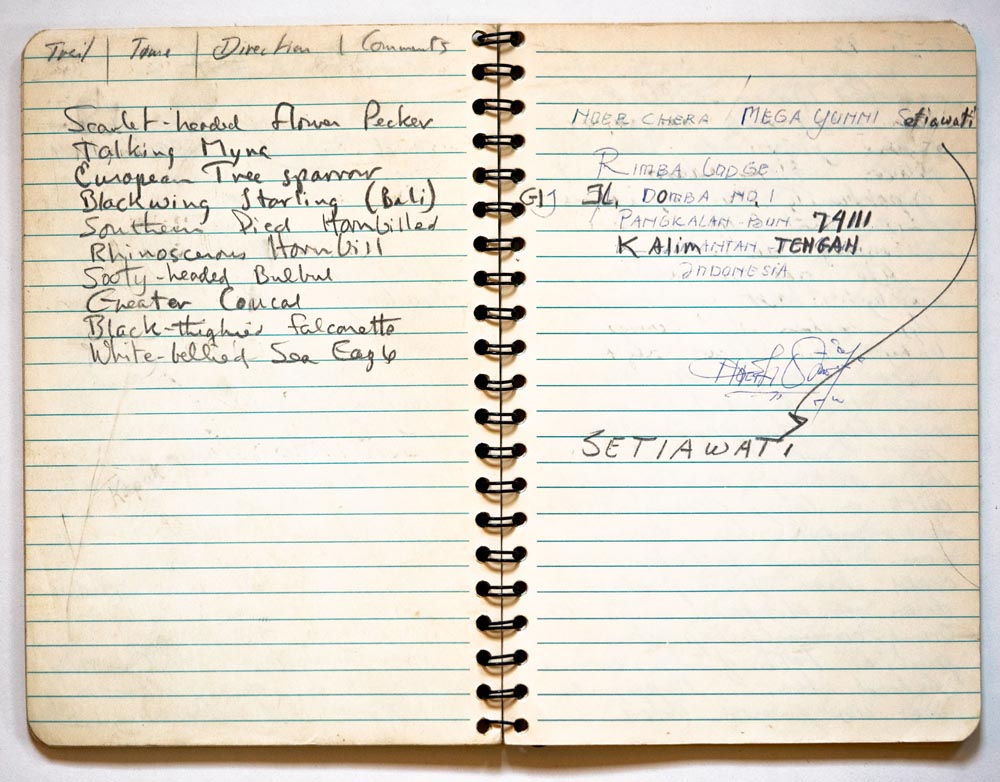 Trail | Time | Direction | Comments
Scarlet-headed flower Pecker
Talking Myna
European Tree sparrow
Blackwing Starling (Bali)
Southern Pied Hornbilled
Rhinoscerous Hornbill
Sooty-headed Bulbul
Greater Coucal
Black-thighed falconette
White-bellied Sea Eagle
MEGA YUMMI Setiawati
RIMBA LODGE
JL DOMBA NO.1
PANGKALAN-BUN 74111
KALIMANTAN TENGAH
INDONESIA
SETIAWATI